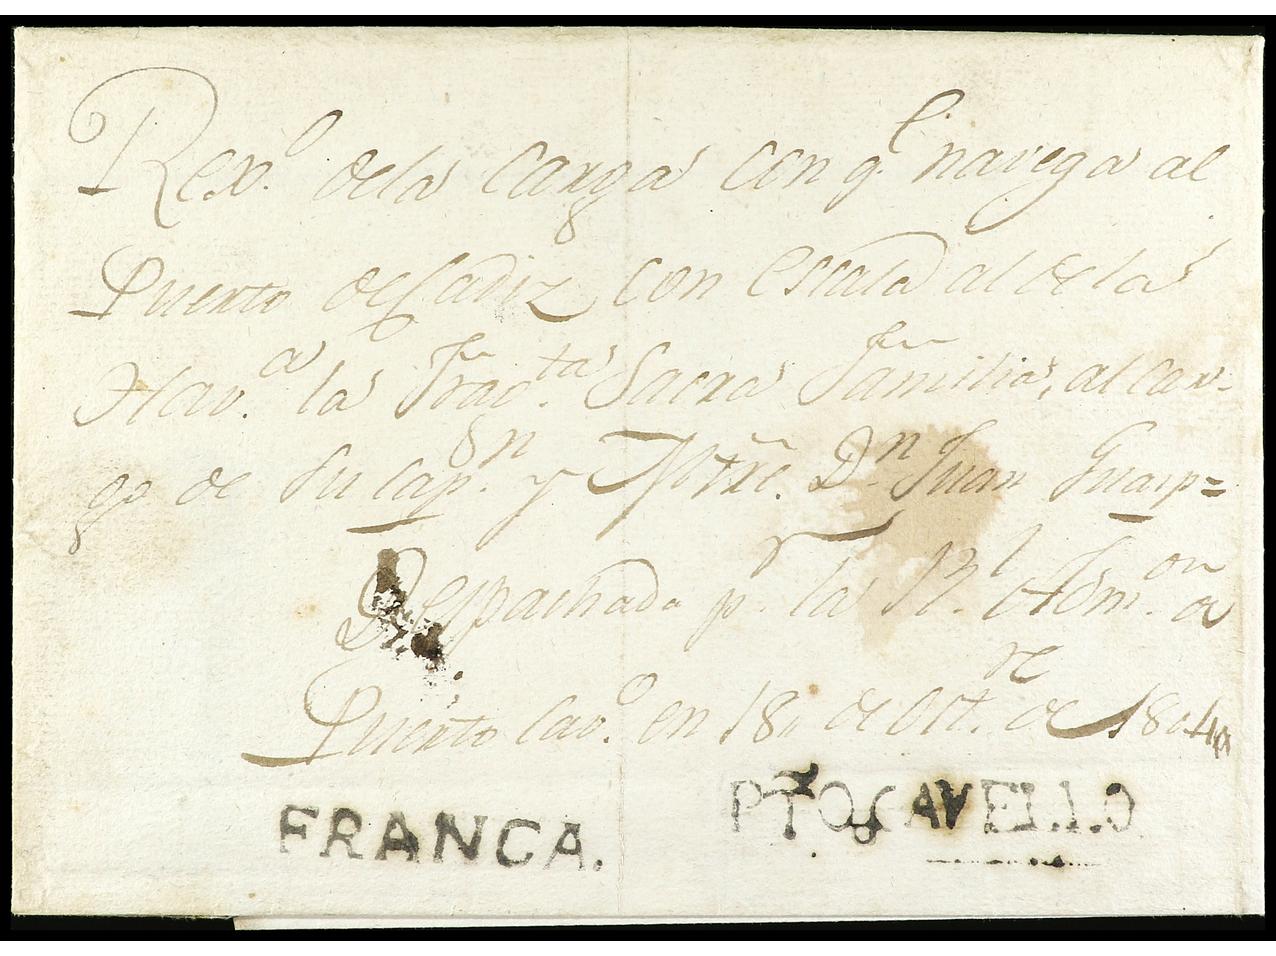 Rexº. dela carga con q.e navega al
Puerto de Cadiz con escala al dela
Havª. la Frag.ta Sacra Familia, al car-
go de su cap.n y Mtre. D.n Juan Guasp=
Despachada p.r la Rl. Adm.on de
Puerto Cavº. en 18,, de Oct.re de 1804
FRANCA. PTOCAVELLO